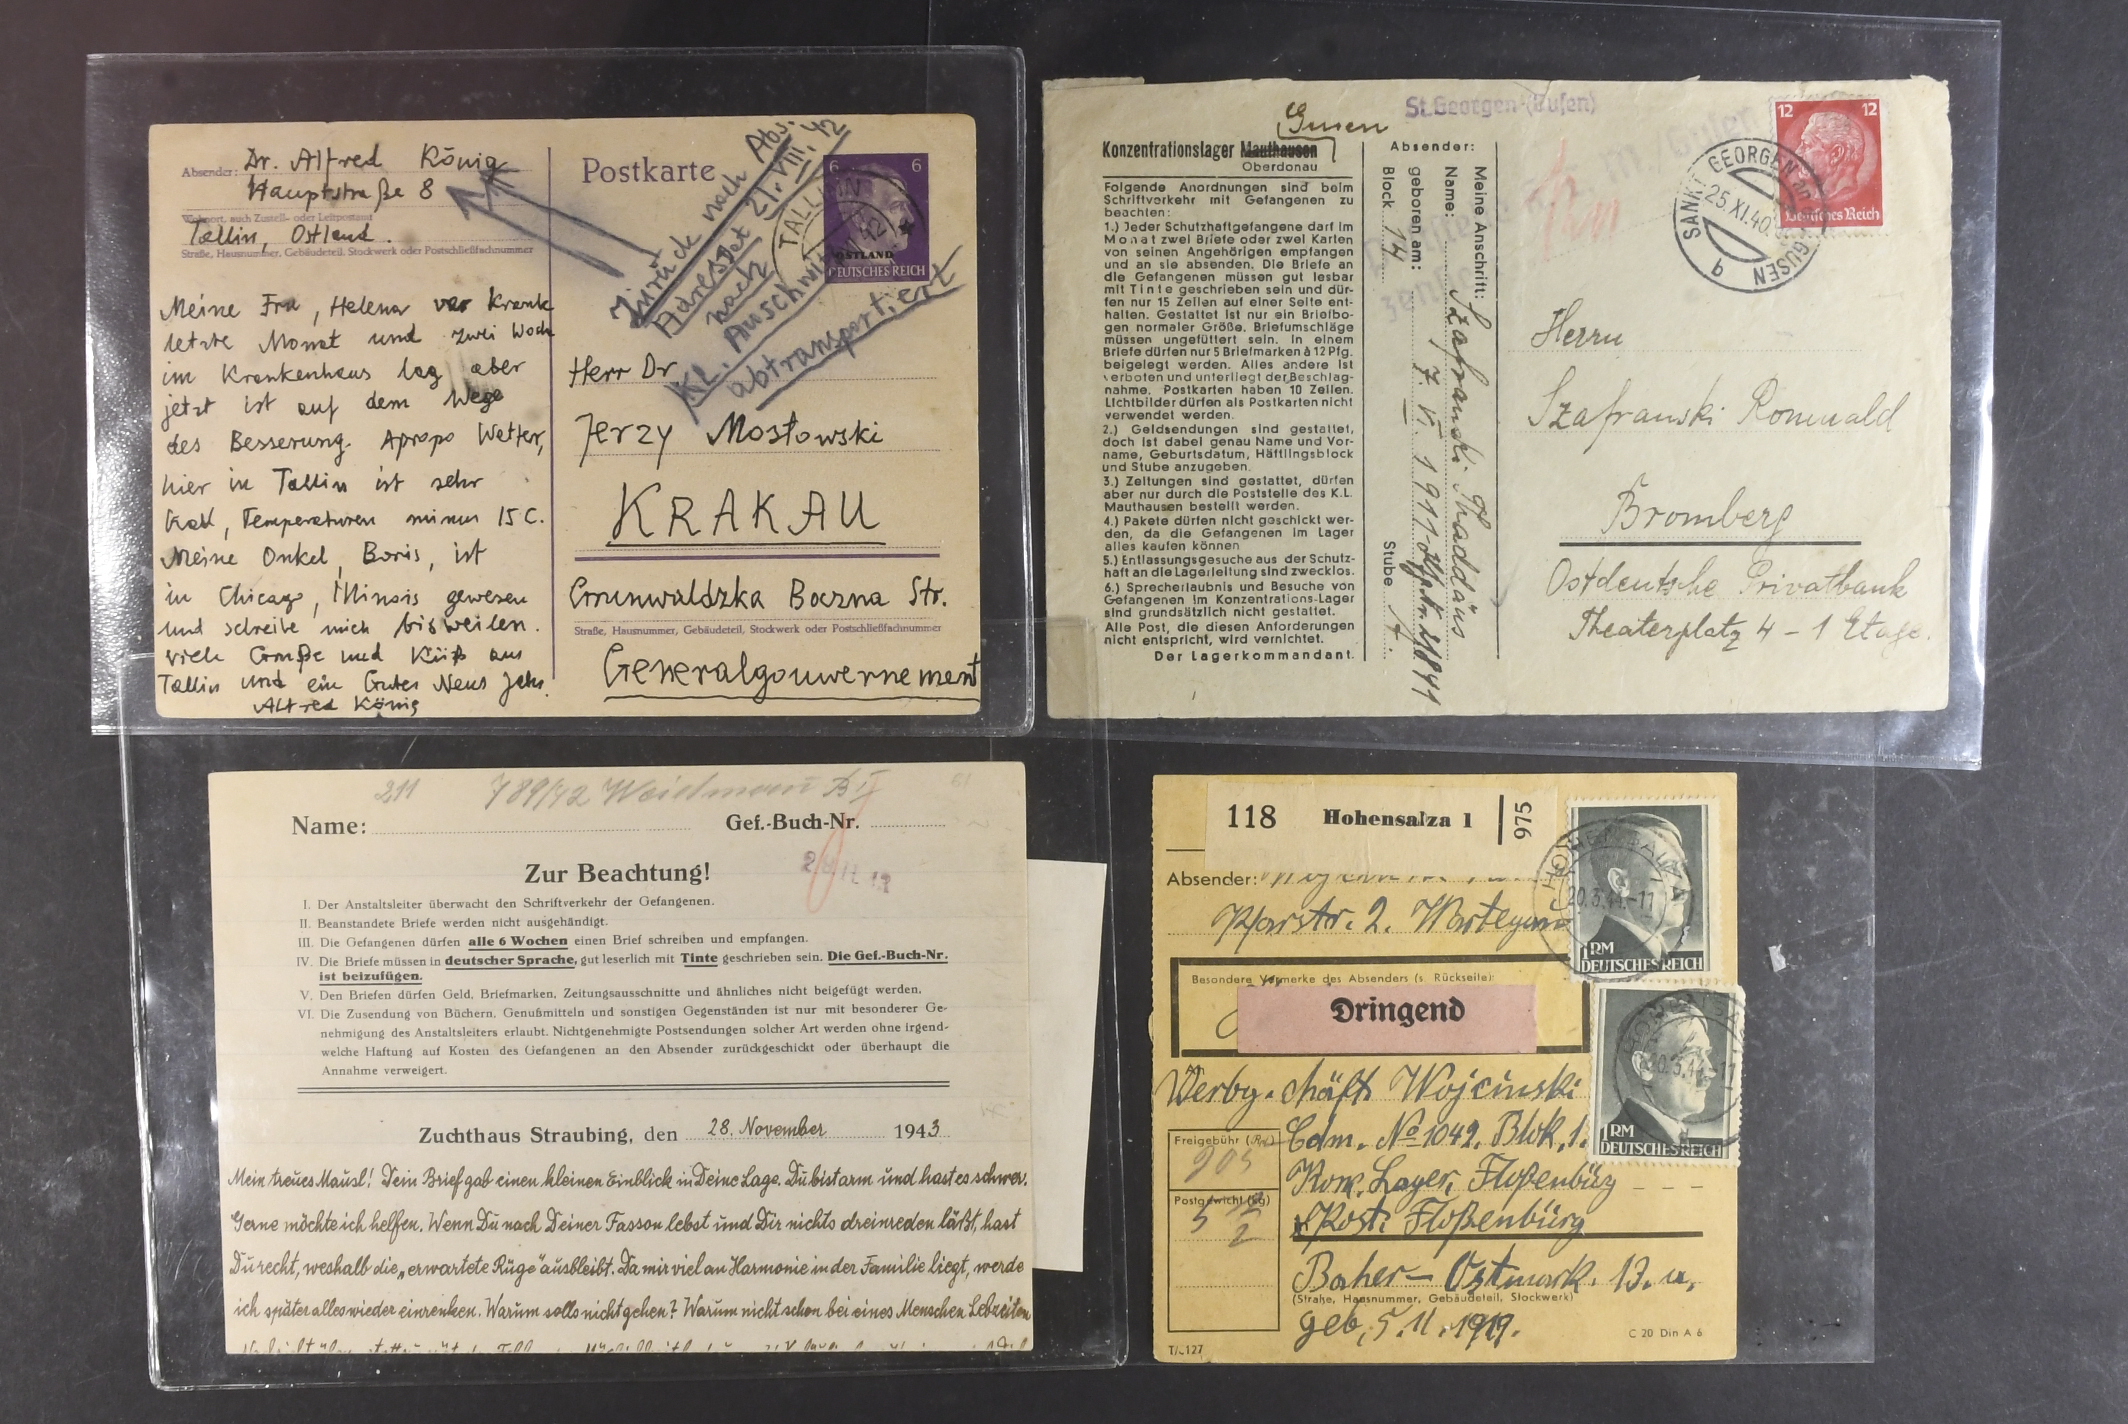 Absender: Dr. Alfred König
Hauptstraße 8
Wohnort, auch Zustell- oder Leitpostamt
Tallin, Ostland.
Straße, Hausnummer, Gebäudeteil, Stockwerk oder Postschließfachnummer
Meine Fra, Helena war krank
letzte Monat und zwei Woch
im Krankenhaus lag aber
jetzt ist auf dem Wege
des Besserung. Apropo Wetter,
hier in Tallin ist sehr
kalt, Temperaturen minus 15 C.
Meine Onkel, Boris, ist
in Chicago, Illinois gewesen
und schreibe mich bisweilen.
viele Gruße und Küß aus
Tallin und ein Gutes Neus Jahr.
Alfred König
Postkarte
6 6
OSTLAND
DEUTSCHES REICH
TALLINN
Zurück nach Abs.
Adressat 21. VIII. 42
nach
KL. Auschwitz
abtransportiert
Herr Dr.
Jerzy Mostowski
KRAKAU
Grunwaldzka Boczna Str.
Straße, Hausnummer, Gebäudeteil, Stockwerk oder Postschließfachnummer
Generalgouvernement
Gusen
St. Georgen (Gusen)
Konzentrationslager Mauthausen
Oberdonau
Folgende Anordnungen sind beim
Schriftverkehr mit Gefangenen zu
beachten:
1.) Jeder Schutzhaftgefangene darf im
Monat zwei Briefe oder zwei Karten
von seinen Angehörigen empfangen
und an sie absenden. Die Briefe an
die Gefangenen müssen gut lesbar
mit Tinte geschrieben sein und dür-
fen nur 15 Zeilen auf einer Seite ent-
halten. Gestattet ist nur ein Briefbo-
gen normaler Größe. Briefumschläge
müssen ungefüttert sein. In einem
Briefe dürfen nur 5 Briefmarken à 12 Pfg.
beigelegt werden. Alles andere ist
verboten und unterliegt der Beschlag-
nahme. Postkarten haben 10 Zeilen.
Lichtbilder dürfen als Postkarten nicht
verwendet werden.
2.) Geldsendungen sind gestattet,
doch ist dabei genau Name und Vor-
name, Geburtsdatum, Häftlingsblock
und Stube anzugeben.
3.) Zeitungen sind gestattet, dürfen
aber nur durch die Poststelle des K.L.
Mauthausen bestellt werden.
4.) Pakete dürfen nicht geschickt wer-
den, da die Gefangenen im Lager
alles kaufen können
5.) Entlassungsgesuche aus der Schutz-
haft an die Lagerleitung sind zwecklos.
6.) Sprecherlaubnis und Besuche von
Gefangenen im Konzentrations-Lager
sind grundsätzlich nicht gestattet.
Alle Post, die diesen Anforderungen
nicht entspricht, wird vernichtet.
Der Lagerkommandant.
Absender:
Meine Anschrift:
Name: Szafranski Thaddäus
geboren am: 7. VI. 1911
Block 14 Stube A.
12 12
Deutsches Reich
SANKT GEORGEN
25.XI.40
b
GUSEN
Herrn
Szafranski Romuald
Bromberg
Ostdeutsche Privatbank
Theaterplatz 4 - 1 Etage.
211 789/42 Weidmann B II
Name: Gef.-Buch-Nr.
Zur Beachtung!
I. Der Anstaltsleiter überwacht den Schriftverkehr der Gefangenen.
II. Beanstandete Briefe werden nicht ausgehändigt.
III. Die Gefangenen dürfen alle 6 Wochen einen Brief schreiben und empfangen.
IV. Die Briefe müssen in deutscher Sprache, gut leserlich mit Tinte geschrieben sein. Die Gef.-Buch-Nr.
ist beizufügen.
V. Den Briefen dürfen Geld, Briefmarken, Zeitungsausschnitte und ähnliches nicht beigefügt werden.
VI. Die Zusendung von Büchern, Genußmitteln und sonstigen Gegenständen ist nur mit besonderer Ge-
nehmigung des Anstaltsleiters erlaubt. Nichtgenehmigte Postsendungen solcher Art werden ohne irgend-
welche Haftung auf Kosten des Gefangenen an den Absender zurückgeschickt oder überhaupt die
Annahme verweigert.
Zuchthaus Straubing, den 28. November 1943
Mein treues Mausl! Dein Brief gab einen kleinen Einblick in Deine Lage. Du bist arm und hast es schwer.
Gerne möchte ich helfen. Wenn Du nach Deiner Fasson lebst und Dir nichts dreinreden läßt, hast
Du recht, weshalb die „erwartete Rüge" ausbleibt. Da mir viel an Harmonie in der Familie liegt, werde
ich später alles wieder einrenken. Warum solls nicht gehen? Warum nicht schon bei eines Menschen Lebzeiten
118 Hohensalza 1 975
Absender:
Pfarstr. 2. Wartegau
Besondere Vermerke des Absenders (s. Rückseite):
Dringend
1 RM
DEUTSCHES REICH
HOHENSALZA
20.3.44.-11
1 RM
DEUTSCHES REICH
20.3.44-11
Wojcinski
No 1049. Blok. 1.
Freigebühr
Postgewicht (kg)
5
Konz. Lager, Floßenbürg
Post: Floßenbürg
Baher - Ostmark. 13. a.
(Straße, Hausnummer, Gebäudeteil, Stockwerk)
geb, 5. 11. 1919.
C 20 Din A 6
T/.127